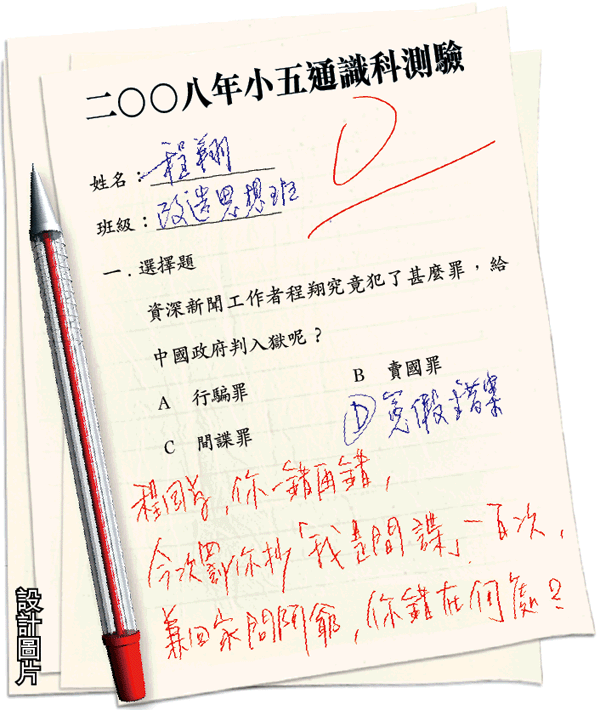 二〇〇八年小五通識科測驗
姓名：程翔
班級：改造思想班
一．選擇題
資深新聞工作者程翔究竟犯了甚麼罪，給
中國政府判入獄呢？
A 行騙罪 B 賣國罪
C 間諜罪 D 冤假錯案
程同學，你一錯再錯，
今次罰你抄「我是間諜」一百次，
兼回家問阿爺，你錯在何處？
設計圖片